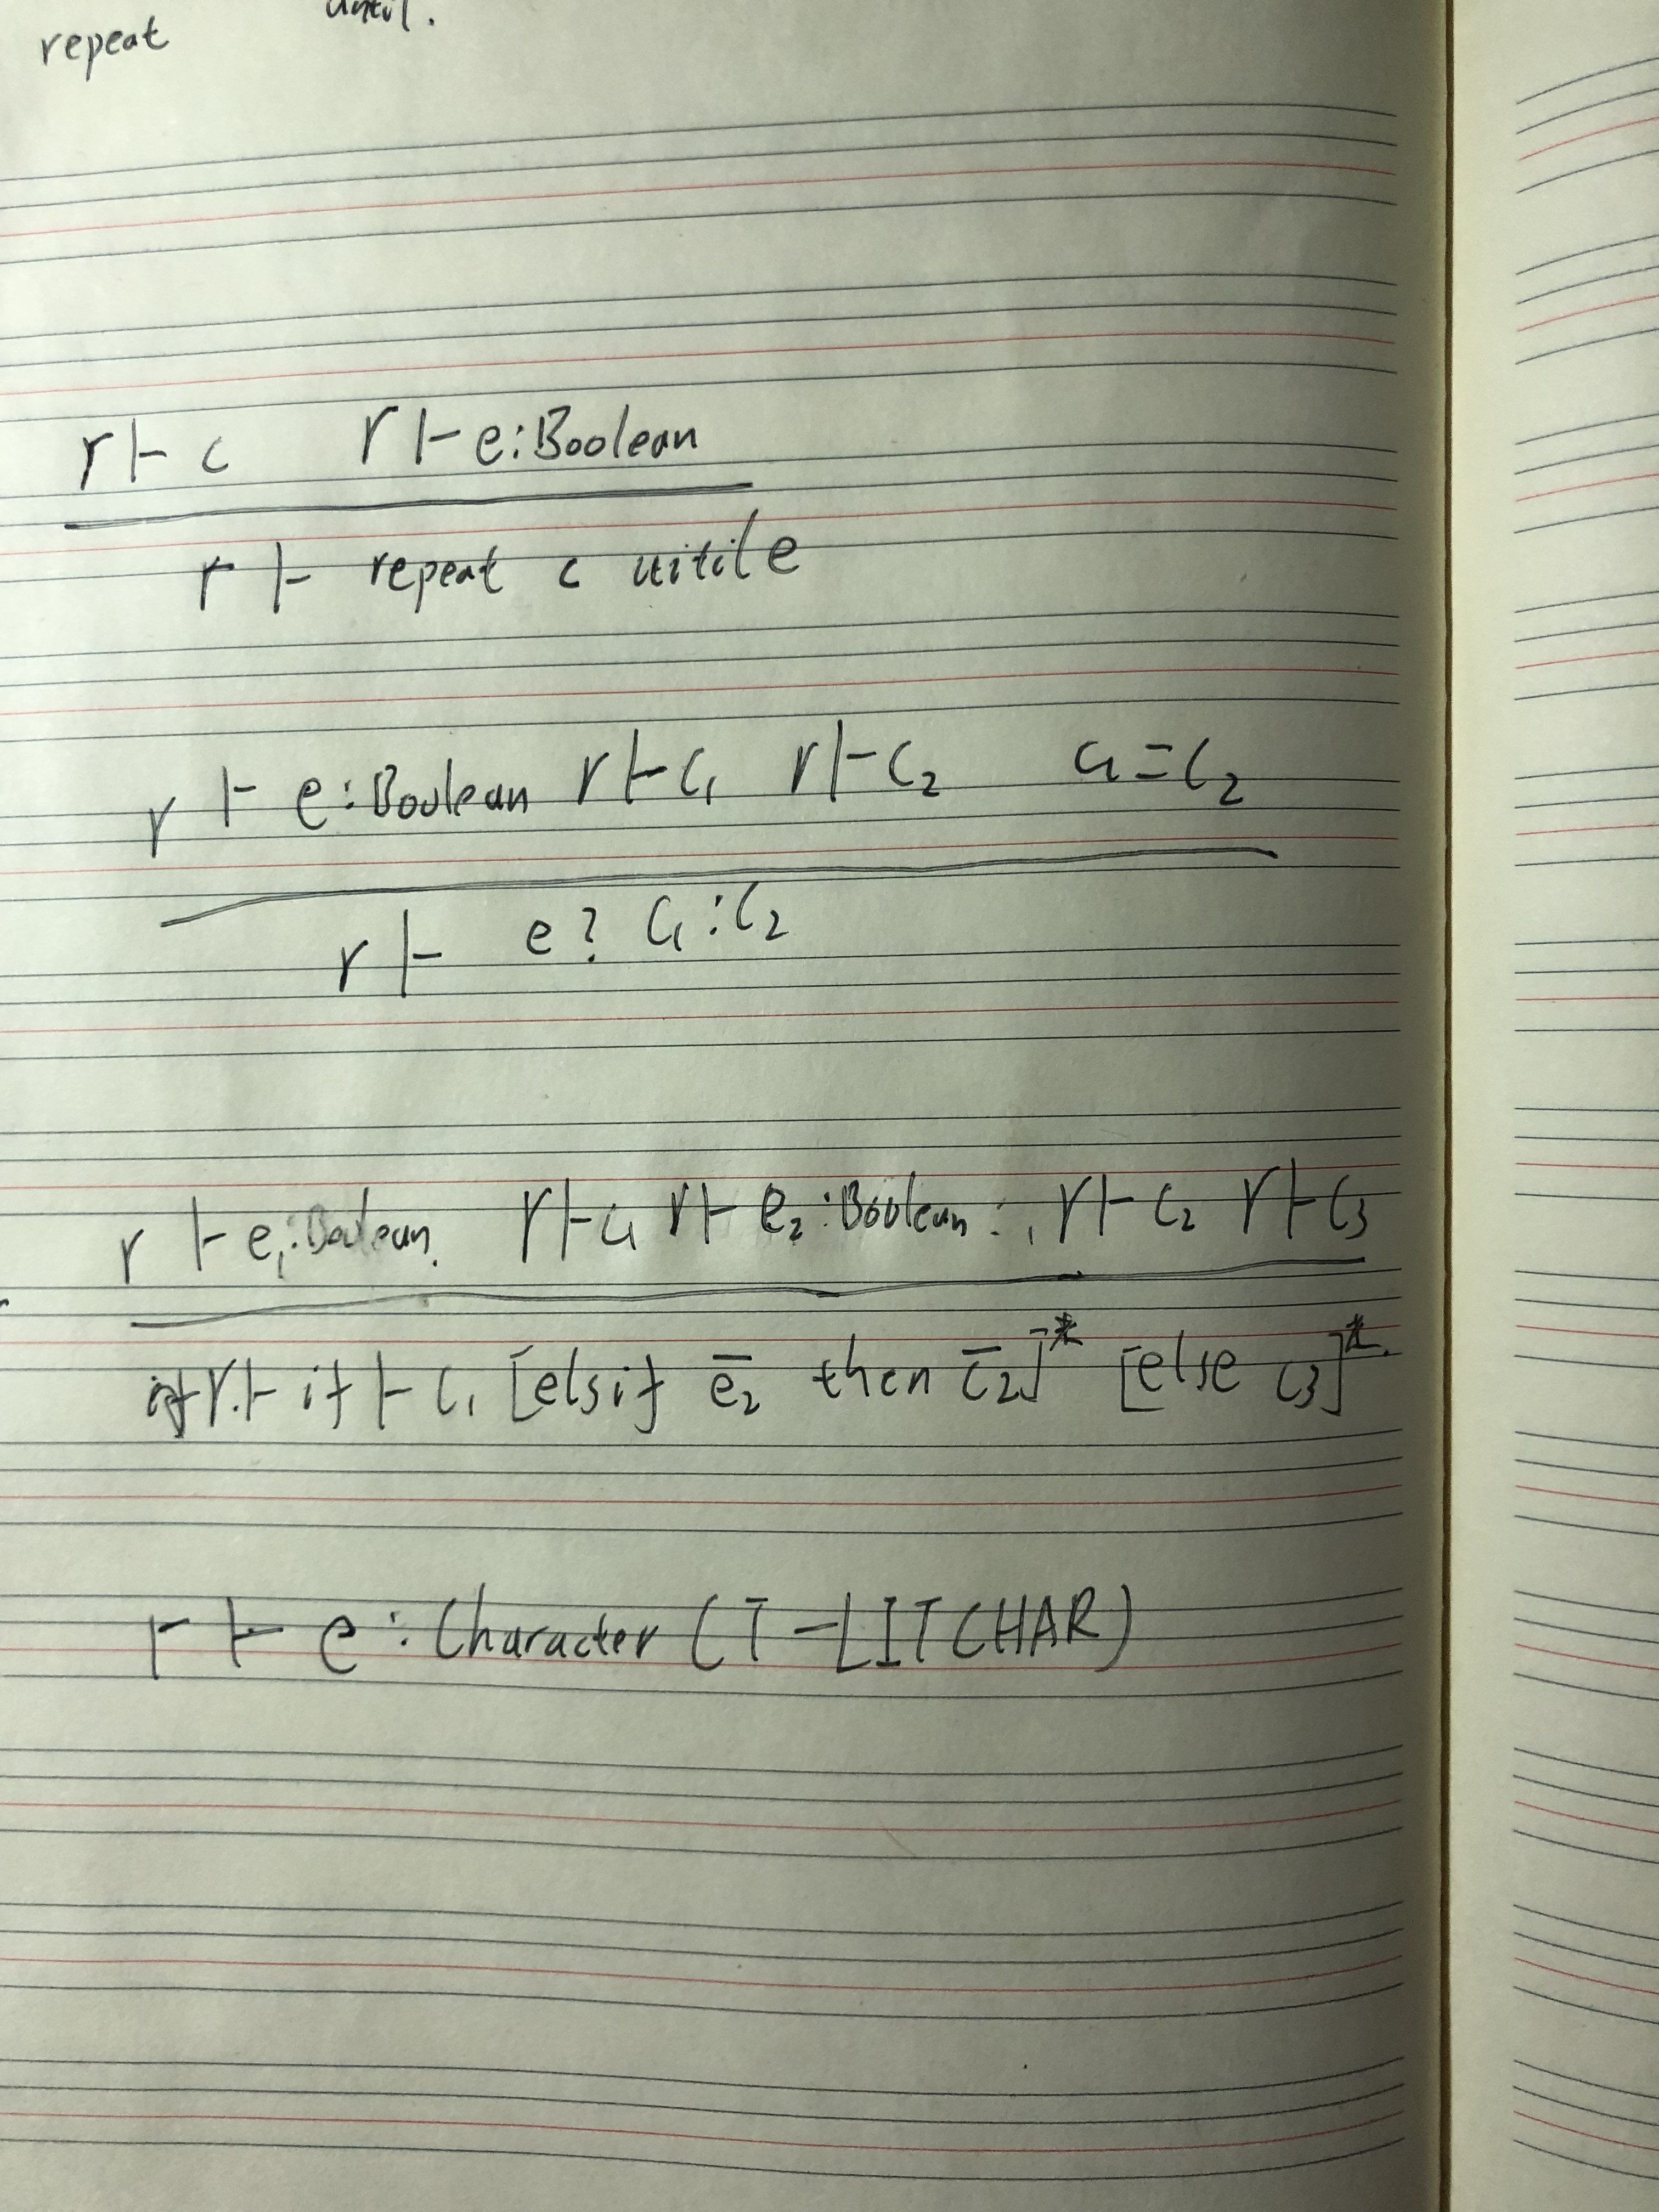 repeat until.
r ⊢ c r ⊢ e:Boolean
r ⊢ repeat c uitile
r ⊢ e:Boolean r ⊢ c₁ r ⊢ c₂ c₁ = c₂
r ⊢ e? c₁:c₂
r ⊢ e₁:Boolean. r ⊢ c₁ r ⊢ e₂:Boolean r ⊢ c₂ r ⊢ c₃
r ⊢ if ⊢ c₁ [elsif e̅₂ then c̅₂]* [else c₃]*.
r ⊢ e:Character (T-LITCHAR)